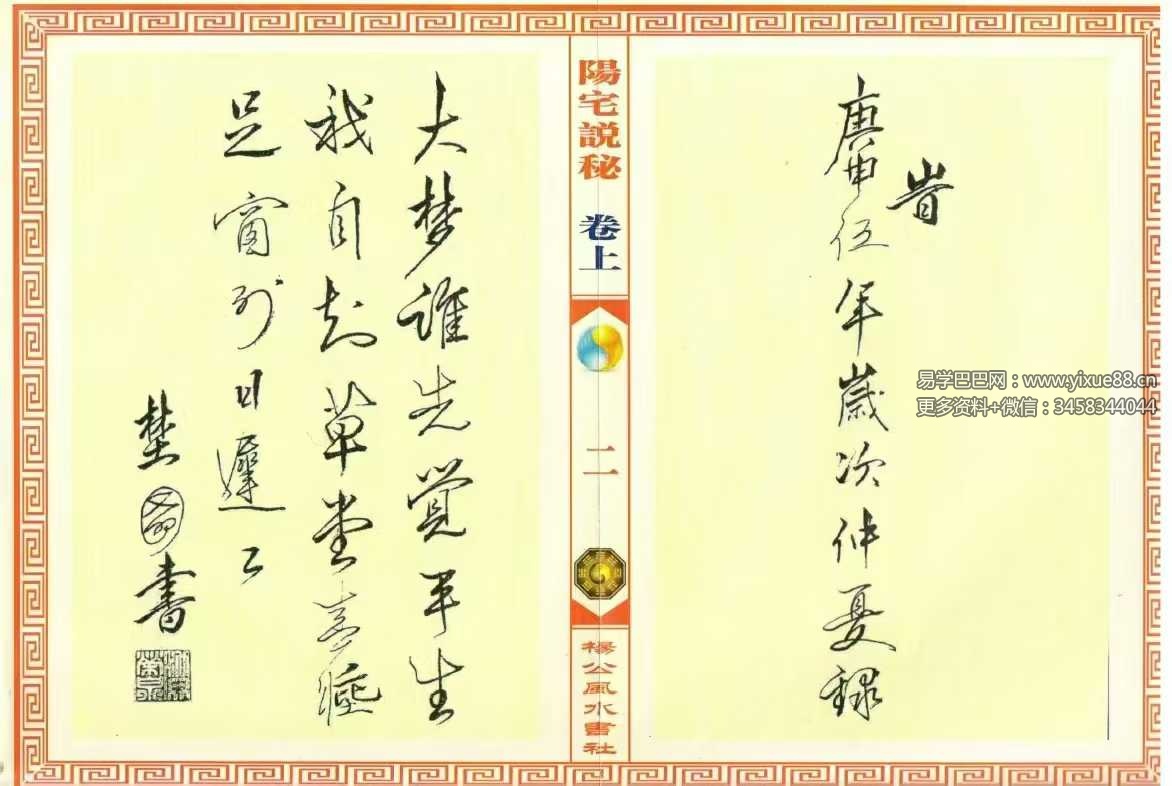 旹
庚申伍年歲次仲夏録
易学巴巴网：www.yixue88.cn
更多资料+微信：3458344044
陽宅説秘
卷上
二
楊公風水書社
大梦誰先觉平生
我自知草堂春睡
足窗外日遲々
書